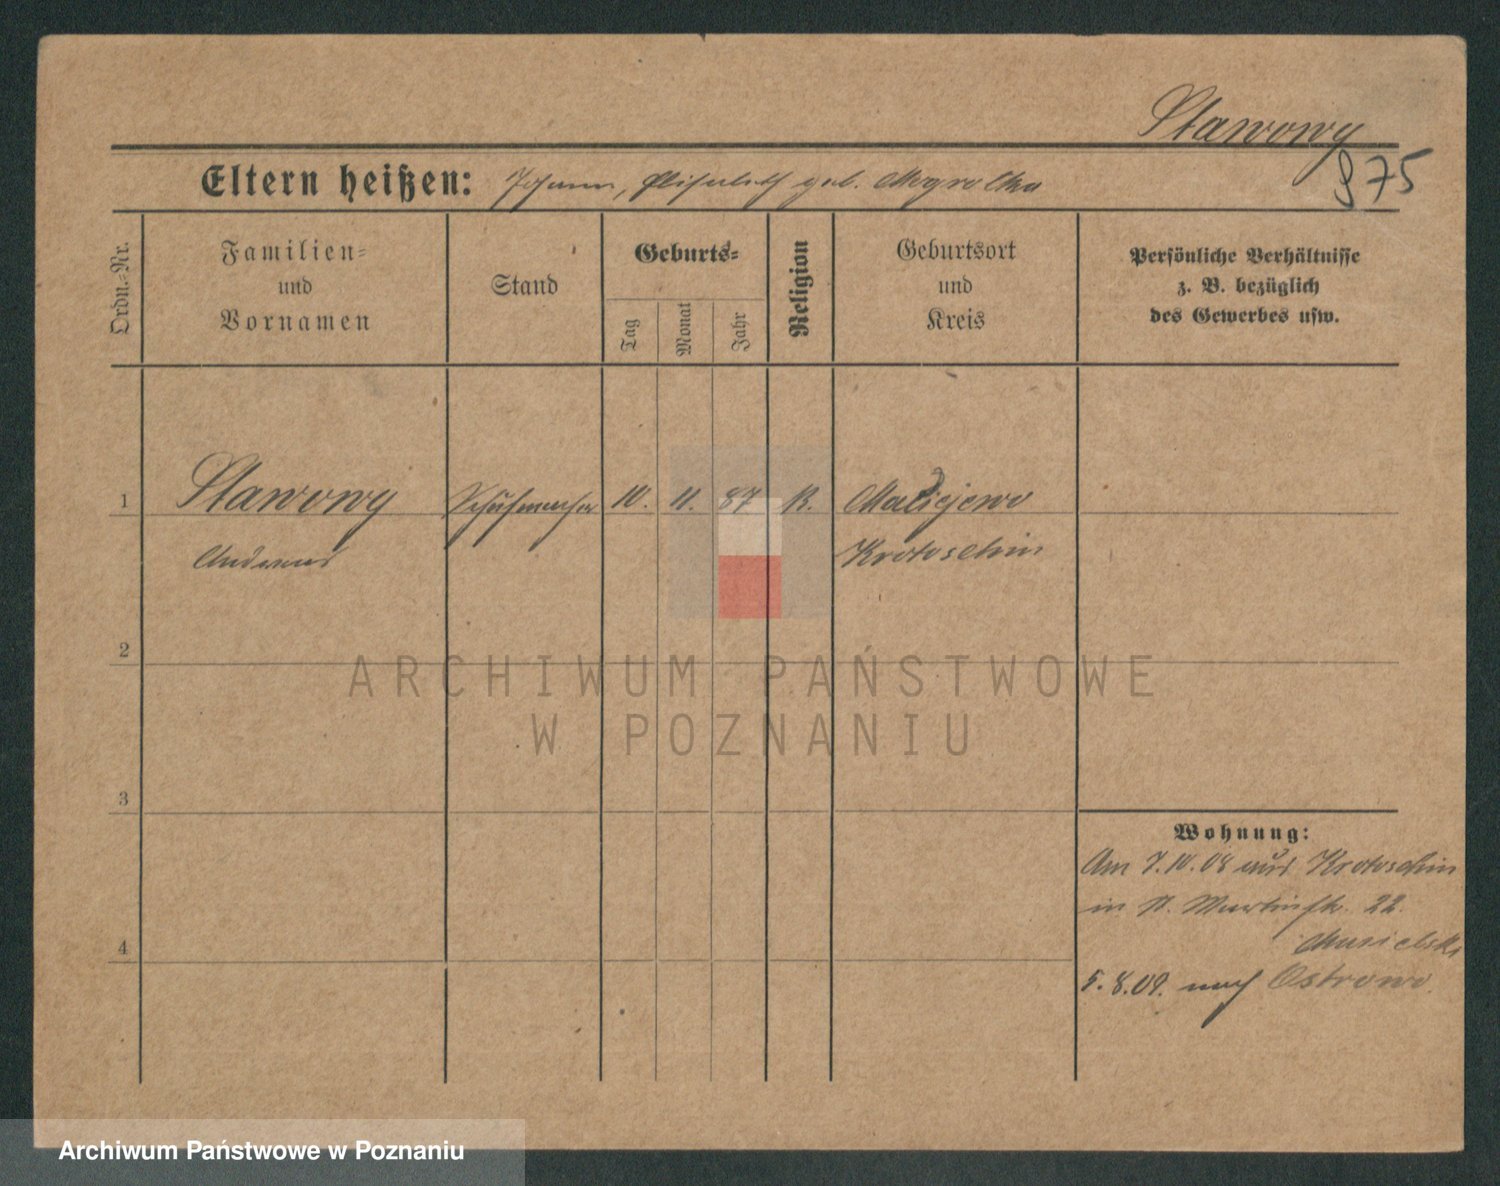 Stawowy
975
Eltern heißen: Johann, Elisabeth geb.
Ordn.-Nr.
Familien-
und
Vornamen
Stand
Geburts-
Tag
Monat
Jahr
Religion
Geburtsort
und
Kreis
Persönliche Verhältnisse
z. B. bezüglich
des Gewerbes usw.
1 Stawowy Schuhmacher 10. 11. 87 k. Maciejewo
Andreas Krotoschin
2
3
4
Wohnung:
Am 7.10.08 aus Krotoschin
in St. Martinstr. 22.
Musielski
5.8.09. nach Ostrowo.
ARCHIWUM PAŃSTWOWE
W POZNANIU
Archiwum Państwowe w Poznaniu